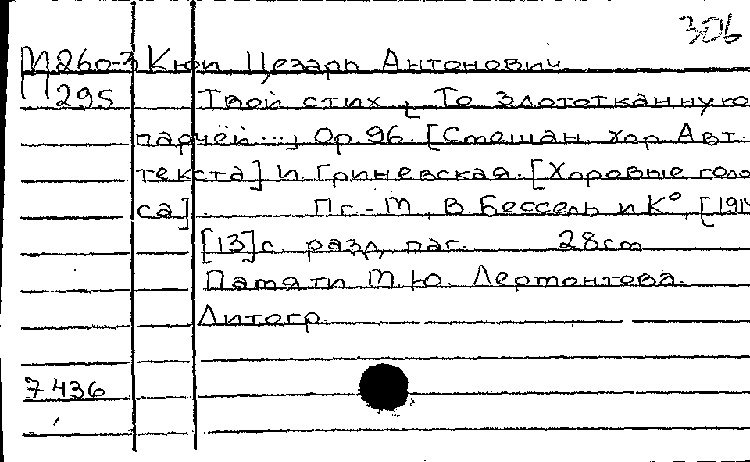 306
М260-3 Кюи Цезарь Антонович
295 Твой стих, То златотканную
парчей...; Op. 96. [Смешан. хор. Авт.
текста] И. Гриневская. [Хоровые голо
са]. Пг.-М., В. Бессель и К°, [191
[13] с. разд. паг. 28 cm
Памяти М. Ю. Лермонтова.
Литогр.
7436